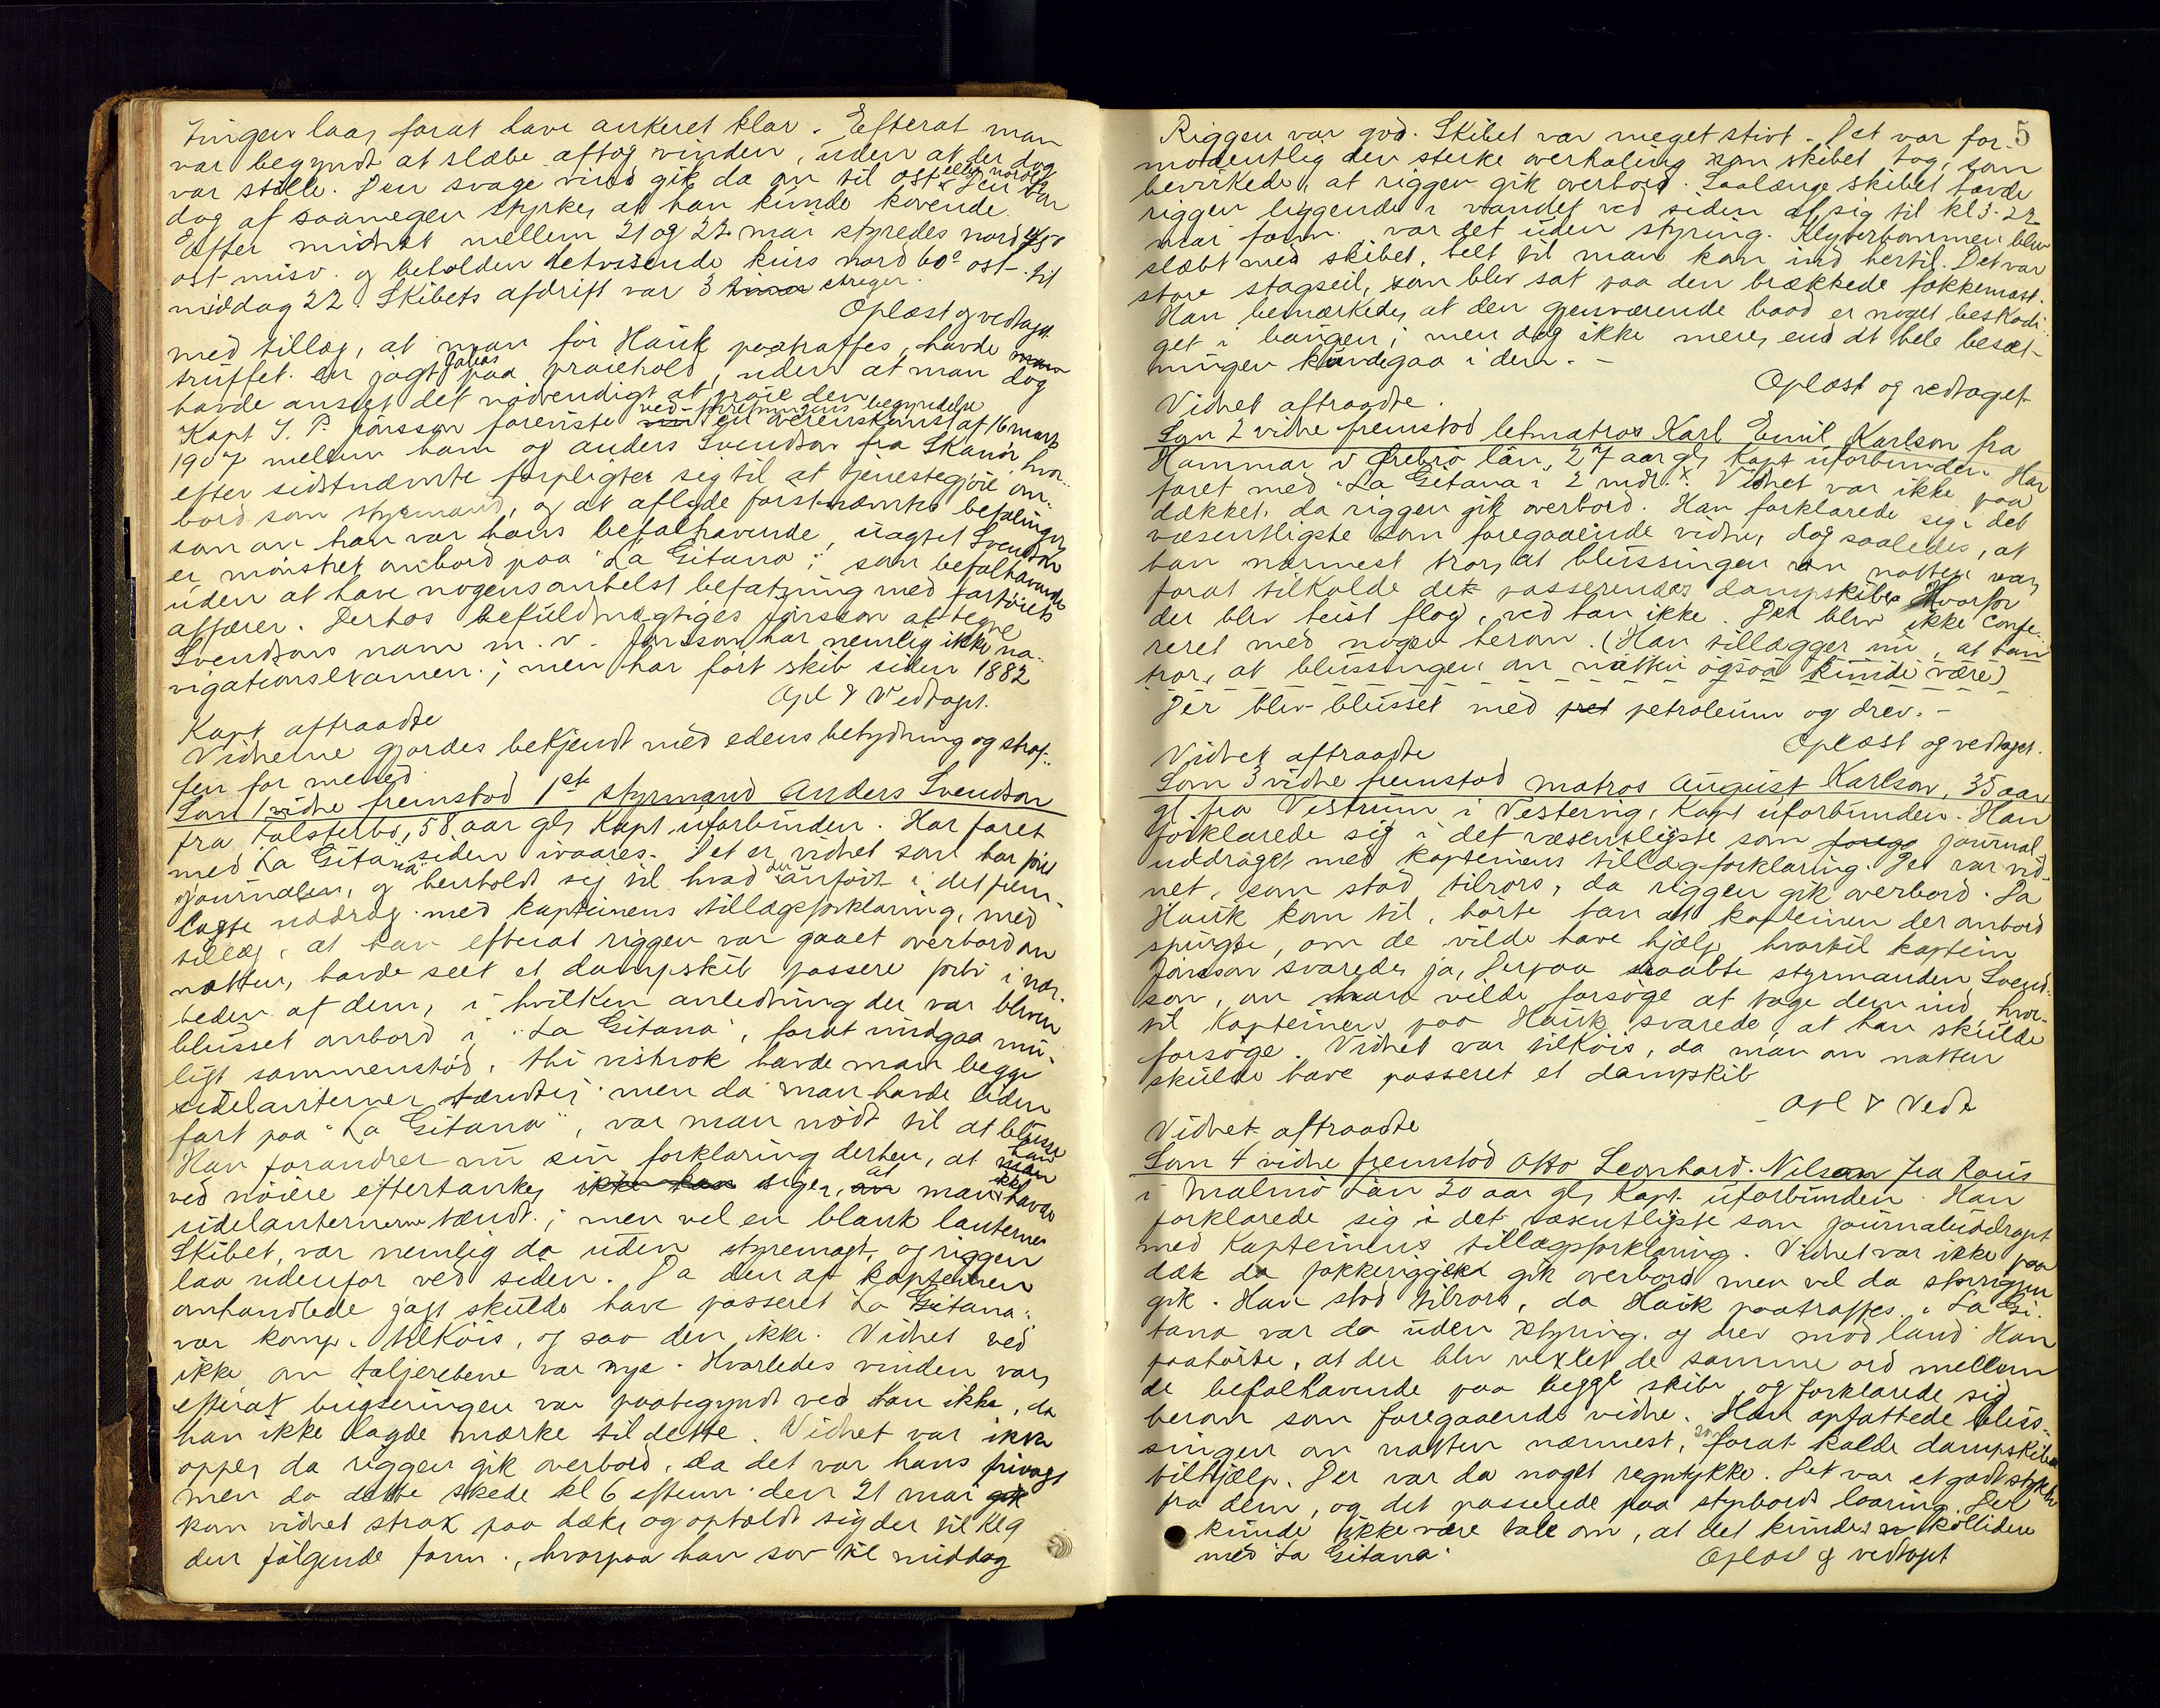 tingen laa, forat have ankeret klar. Efterat man
var begyndt at slæbe aftog vinden, uden at der dog
var stille. Den svage vind gik da om til ost eller nordost. Den var
dog af saamegen styrke, at han kunde kovende.
Efter midnat mellem 21 og 22 mai styredes nord 45°
ost misv. og beholden retvisende kurs nord 60° ost - til
middag 22. Skibets afdrift var 3 streger.
Oplæst og vedtaget
med tillæg, at man før Hauk paatraffes, havde
truffet en jagt paa praiehold, uden at man dog
havde anseet det nødvendigt at praie den
Kapt J. P. Jønsson foreviste ved forretningens begyndelse en overenskomst af 16 marts
1907 mellem ham og Anders Svendson fra Skanør, hvor-
efter sidstnævnte forpligter seg til at tjenestegjøre om-
bord som styrmand, og at aflyde førstnævntes befalinger
som om han var hans befalhavende, uagtet Svendson
er mønstret ombord paa "La Gitana" som befalhavende
uden at have nogensomhelst befatning med fartøiets
affærer. Derhos befuldmægtiges Jønsson at tegne
Svendsons navn m. v. Jønsson har nemlig ikke na-
vigationsexamen; men har ført skib siden 1882
Opl & Vedtaget.
Kapt aftraadte
Vidnerne gjordes bekjendt med edens betydning og straf-
fen for mened.
Som 1 vidne fremstod 1st styrmand Anders Svendson
fra Falsterbo, 58 aar gl, Kapt uforbunden. Har faret
med La Gitana siden ivaares. Det er vidnet som har ført
journalen, og henholdt sej til hvad der anført i det frem-
lagte uddrag med kapteinens tillægsforklaring, med
tillæg, at han efterat riggen var gaaet overbord om
natten, havde seet et dampskib passere forbi i nær-
heden af dem, i hvilken anledning der var bleven
blusset ombord i "La Gitana", forat undgaa mu-
ligt sammenstød, thi vistnok havde man begge
sidelanterner tændte; men da man havde liden
fart paa "La Gitana", var man nødt til at blusse
Han forandrer nu sin forklaring derhen, at han
ved nøiere eftertanke, siger, at man ikke havde
sidelanternerne tændt; men vel en blank lanterne
Skibet var nemlig da uden styremagt, og riggen
laa udenfor ved siden. Da den af kapteinen
omhandlede jagt skulde have passeret La Gitana,
var komp. tilkøis, og saa den ikke. Vidnet ved
ikke om taljerebene var nye. Hvorledes vinden var,
efterat bugseringen var paabegyndt ved han ikke, da
han ikke lagde mærke til dette. Vidnet var ikke
oppe, da riggen gik overbord, da det var hans frivagt
men da dette skede kl 6 efterm. den 21 mai
kom vidnet strax paa dæk, og opholdt sig der til kl 9
den følgende form., hvorpaa han sov til middag
5
Riggen var god. Skibet var meget stivt. Det var for-
modentlig den sterke overhaling som skibet tog, som
bevirkede, at riggen gik overbord. Saalænge skibet havde
riggen liggende i vandet ved siden af sig til kl 3. 22
mai form. var det uden styring. Klyverbommen blev
slæbt med skibet, helt til man kom ind hertil. Det var
store stagseil, som blev sat paa den brækkede fokkemast.
Han bemærkede, at den gjenværende baad er noget beskadi-
get i baugen; men dog ikke mere, end at hele besæt-
ningen kunde gaa i den. -
Oplæst og vedtaget
Vidnet aftraadte.
Som 2 vidne fremstod letmatros Karl Emil Karlson fra
Hammar v Ørebro län, 27 aar gl, Kapt uforbunden. Har
faret med "La Gitana i 2 mdr. Vidnet var ikke paa
dækket, da riggen gik overbord. Han forklarede sig i det
væsentligste som foregaaende vidne, dog saaledes, at
han nærmest tror, at blussingen om natten var,
forat tilkalde det passerende dampskib. Hvorfor
der blev heist flag, ved han ikke. Det blev ikke confe-
reret med nogen herom. (Han tillægger nu, at han
tror, at blussingen om natten ogsaa kunde være)
Der blev blusset med petroleum og drev. -
Oplæst og vedtaget.
Vidnet aftraadte
Som 3 vidne fremstod matros August Karlson, 35 aar
gl. fra Vestrum i Vestervig, Kapt uforbunden. Han
forklarede sig i det væsentligste som journal-
uddraget med kapteinens tillægforklaring. Det var vid-
net, som stod tilrors, da riggen gik overbord. Da
Hauk kom til, hørte han at kapteinen der ombord
spurgte, om de vilde have hjælp, hvortil kaptein
Jønsson svarede, ja, Derpaa raabte styrmanden Svend-
son, om han vilde forsøge at tage dem ind, hvor-
til Kapteinen paa Hauk svarede, at han skulde
forsøge. Vidnet var tilkøis, da man om natten
skulde have passeret et dampskib
Opl & Vedt
Vidnet aftraadte
Som 4 vidne fremstod Otto Leonhard Nilson fra Raus
i Malmø Län 20 aar gl, Kapt. uforbunden. Han
forklarede sig i det væsentligste som journaluddraget
med Kapteinens tillægsforklaring. Vidnet var ikke paa
dæk da fokkeriggen gik overbord men vel da storriggen
gik. Han stod tilrors, da Hauk paatraffes. La Gi-
tana var da uden styring, og drev mod land. Han
paahørte, at der blev vexlet de samme ord mellem
de befalhavende paa begge skibe, og forklarede sig
herom som foregaaende vidne. Han opfattede blus-
singen om natten nærmest, som forat kalde dampskibet
tilhjælp. Der var da noget regntykke. Det var et godt stykke
fra dem, og det passerede paa styrbords laaring. Der
kunde ikke være tale om, at det kunde kollidere
med La Gitana.
Oplæst og vedtaget